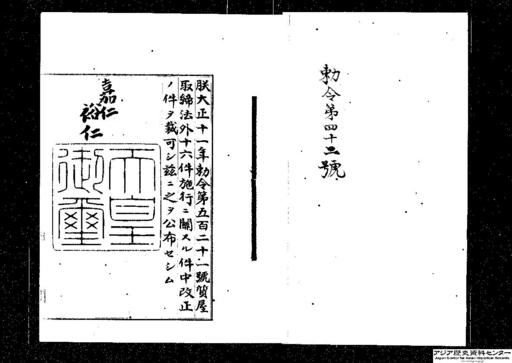 勅令第四十三號
朕大正十一年勅令第五百二十一號質屋
取締法外十六件施行ニ關スル件中改正
ノ件ヲ裁可シ茲ニ之ヲ公布セシム
嘉仁
裕仁
天皇
御璽
アジア歴史資料センター
Japan Center for Asian Historical Records